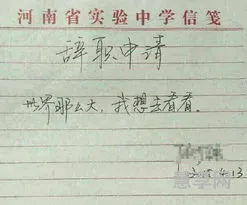 河南省实验中学信笺
辞职申请
世界那么大，我想去看看。